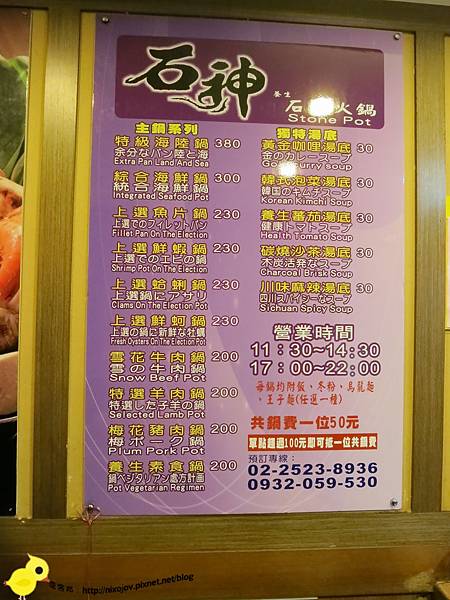 石神
養生
石頭火鍋
Stone Pot
主鍋系列
特級海陸鍋 380
余分なパン陸と海
Extra Pan Land And Sea
綜合海鮮鍋 300
統合海鮮鍋
Integrated Seafood Pot
上選魚片鍋 230
上選でのフィレットパン
Fillet Pan On The Election
上選鮮蝦鍋 230
上選でのエビの鍋
Shrimp Pot On The Election
上選蛤蜊鍋 230
上選鍋にアサリ
Clams On The Election Pot
上選鮮蚵鍋 230
上選の鍋に新鮮な牡蠣
Fresh Oysters On The Election Pot
雪花牛肉鍋 200
雪の牛肉鍋
Snow Beef Pot
特選羊肉鍋 200
特選した子羊の鍋
Selected Lamb Pot
梅花豬肉鍋 200
梅ポーク鍋
Plum Pork Pot
養生素食鍋 200
鍋ベジタリアン処方計画
Pot Vegetarian Regimen
獨特湯底
黃金咖哩湯底 30
金のカレースープ
Gold curry soup
韓式泡菜湯底 30
韓国のキムチスープ
Korean Kimchi Soup
養生蕃茄湯底 30
健康トマトスープ
Health Tomato Soup
碳燒沙茶湯底 30
木炭活発なスープ
Charcoal Brisk Soup
川味麻辣湯底 30
四川スパイシーなスープ
Sichuan Spicy Soup
營業時間
11：30~14:30
17：00~22:00
每鍋均附飯、冬粉、烏龍麵
、王子麵(任選一種)
共鍋費一位50元
單點超過100元即可抵一位共鍋費
預訂專線：
02-2523-8936
0932-059-530
http://nixojov.pixnet.net/blog